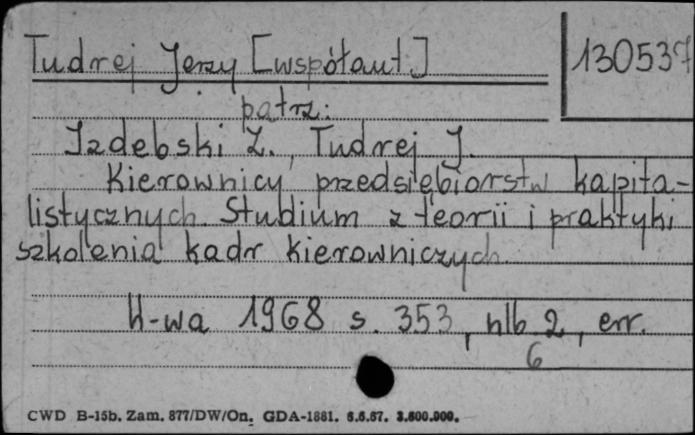 Tudrej Jerzy [współaut.]
130537
patrz:
Izdebski Z., Tudrej J.
Kierownicy przedsiębiorstw kapita-
listycznych. Studium z teorii i praktyki
szkolenia kadr kierowniczych.
W-wa 1968 s. 353, nlb 2, err.
6
CWD B-15b. Zam. 877/DW/On. GDA-1881. 6.6.67. 3.600.000.